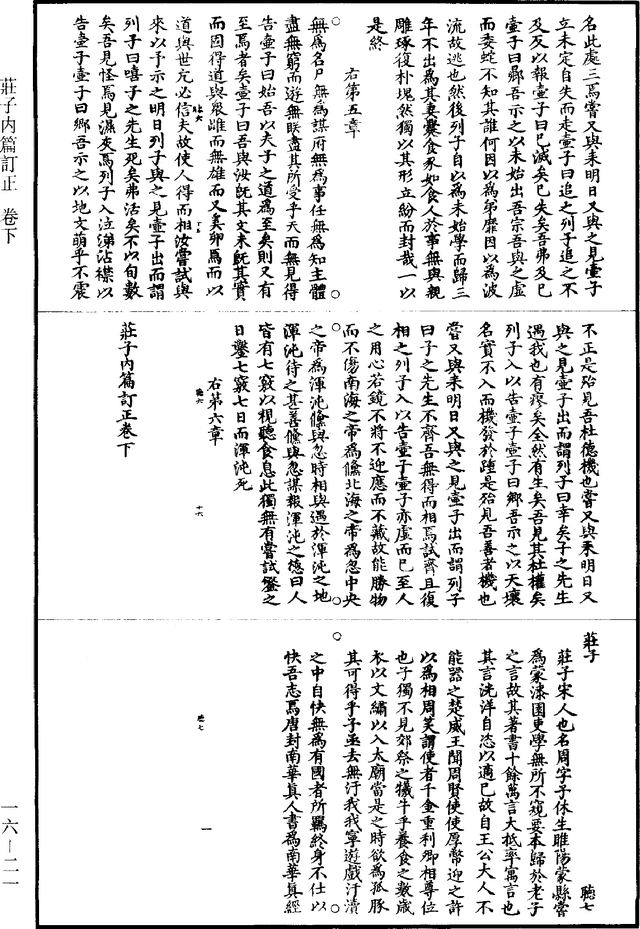 名此處三焉嘗又與來明日又與之見壺子
立未定自失而走壺子曰追之列子追之不
及反以報壺子曰已滅矣已失矣吾弗及已
壺子曰鄉吾示之以未始出吾宗吾與之虛
而委蛇不知其誰何因以為弟靡因以為波
流故逃也然後列子自以為未始學而歸三
年不出為其妻爨食豕如食人於事無與親
雕琢復朴塊然獨以其形立紛而封哉一以
是終
右第五章
無為名尸無為謀府無為事任無為知主體
盡無窮而遊無朕盡其所受乎天而無見得
告壺子曰始吾以夫子之道為至矣則又有
至焉者矣壺子曰吾與汝既其文未既其實
而因得道與眾雌而無雄而又奚卵焉而以
道與世亢必信夫故使人得而相汝嘗試與
來以予示之明日列子與之見壺子出而謂
列子曰嘻子之先生死矣弗活矣不以旬數
矣吾見怪焉見濕灰焉列子入泣涕沾襟以
告壺子壺子曰鄉吾示之以地文萌乎不震
不正是殆見吾杜德機也嘗又與來明日又
與之見壺子出而謂列子曰幸矣子之先生
遇我也有瘳矣全然有生矣吾見其杜權矣
列子入以告壺子壺子曰鄉吾示之以天壤
名實不入而機發於踵是殆見吾善者機也
嘗又與來明日又與之見壺子出而謂列子
曰子之先生不齊吾無得而相焉試齊且復
相之列子入以告壺子壺子亦虛而已至人
之用心若鏡不將不迎應而不藏故能勝物
而不傷南海之帝為儵北海之帝為忽中央
之帝為渾沌儵與忽時相與遇於渾沌之地
渾沌待之甚善儵與忽謀報渾沌之德曰人
皆有七竅以視聽食息此獨無有嘗試鑿之
日鑿七竅七日而渾沌死
右第六章
聽六
十六
莊子內篇訂正卷下
莊子
聽七
莊子宋人也名周字子休生睢陽蒙縣嘗
為蒙漆園吏學無所不窺要本歸於老子
之言故其著書十餘萬言大柢率寓言也
其言洸洋自恣以適已故自王公大人不
能器之楚威王聞周賢使使厚幣迎之許
以為相周笑謂使者千金重利卿相尊位
也子獨不見郊祭之犧牛乎養食之數歲
衣以文繡以入太廟當是之時欲為孤豚
其可得乎子亟去無汙我我寧遊戲汙瀆
之中自快無為有國者所羈終身不仕以
快吾志焉唐封南華真人書為南華真經
聽七
一
莊子內篇訂正 卷下
一六—二一